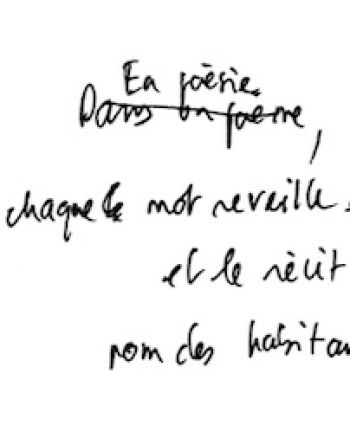 En poésie
Dans un poème,
chaque mot reveille
et le récit
nom des habitan